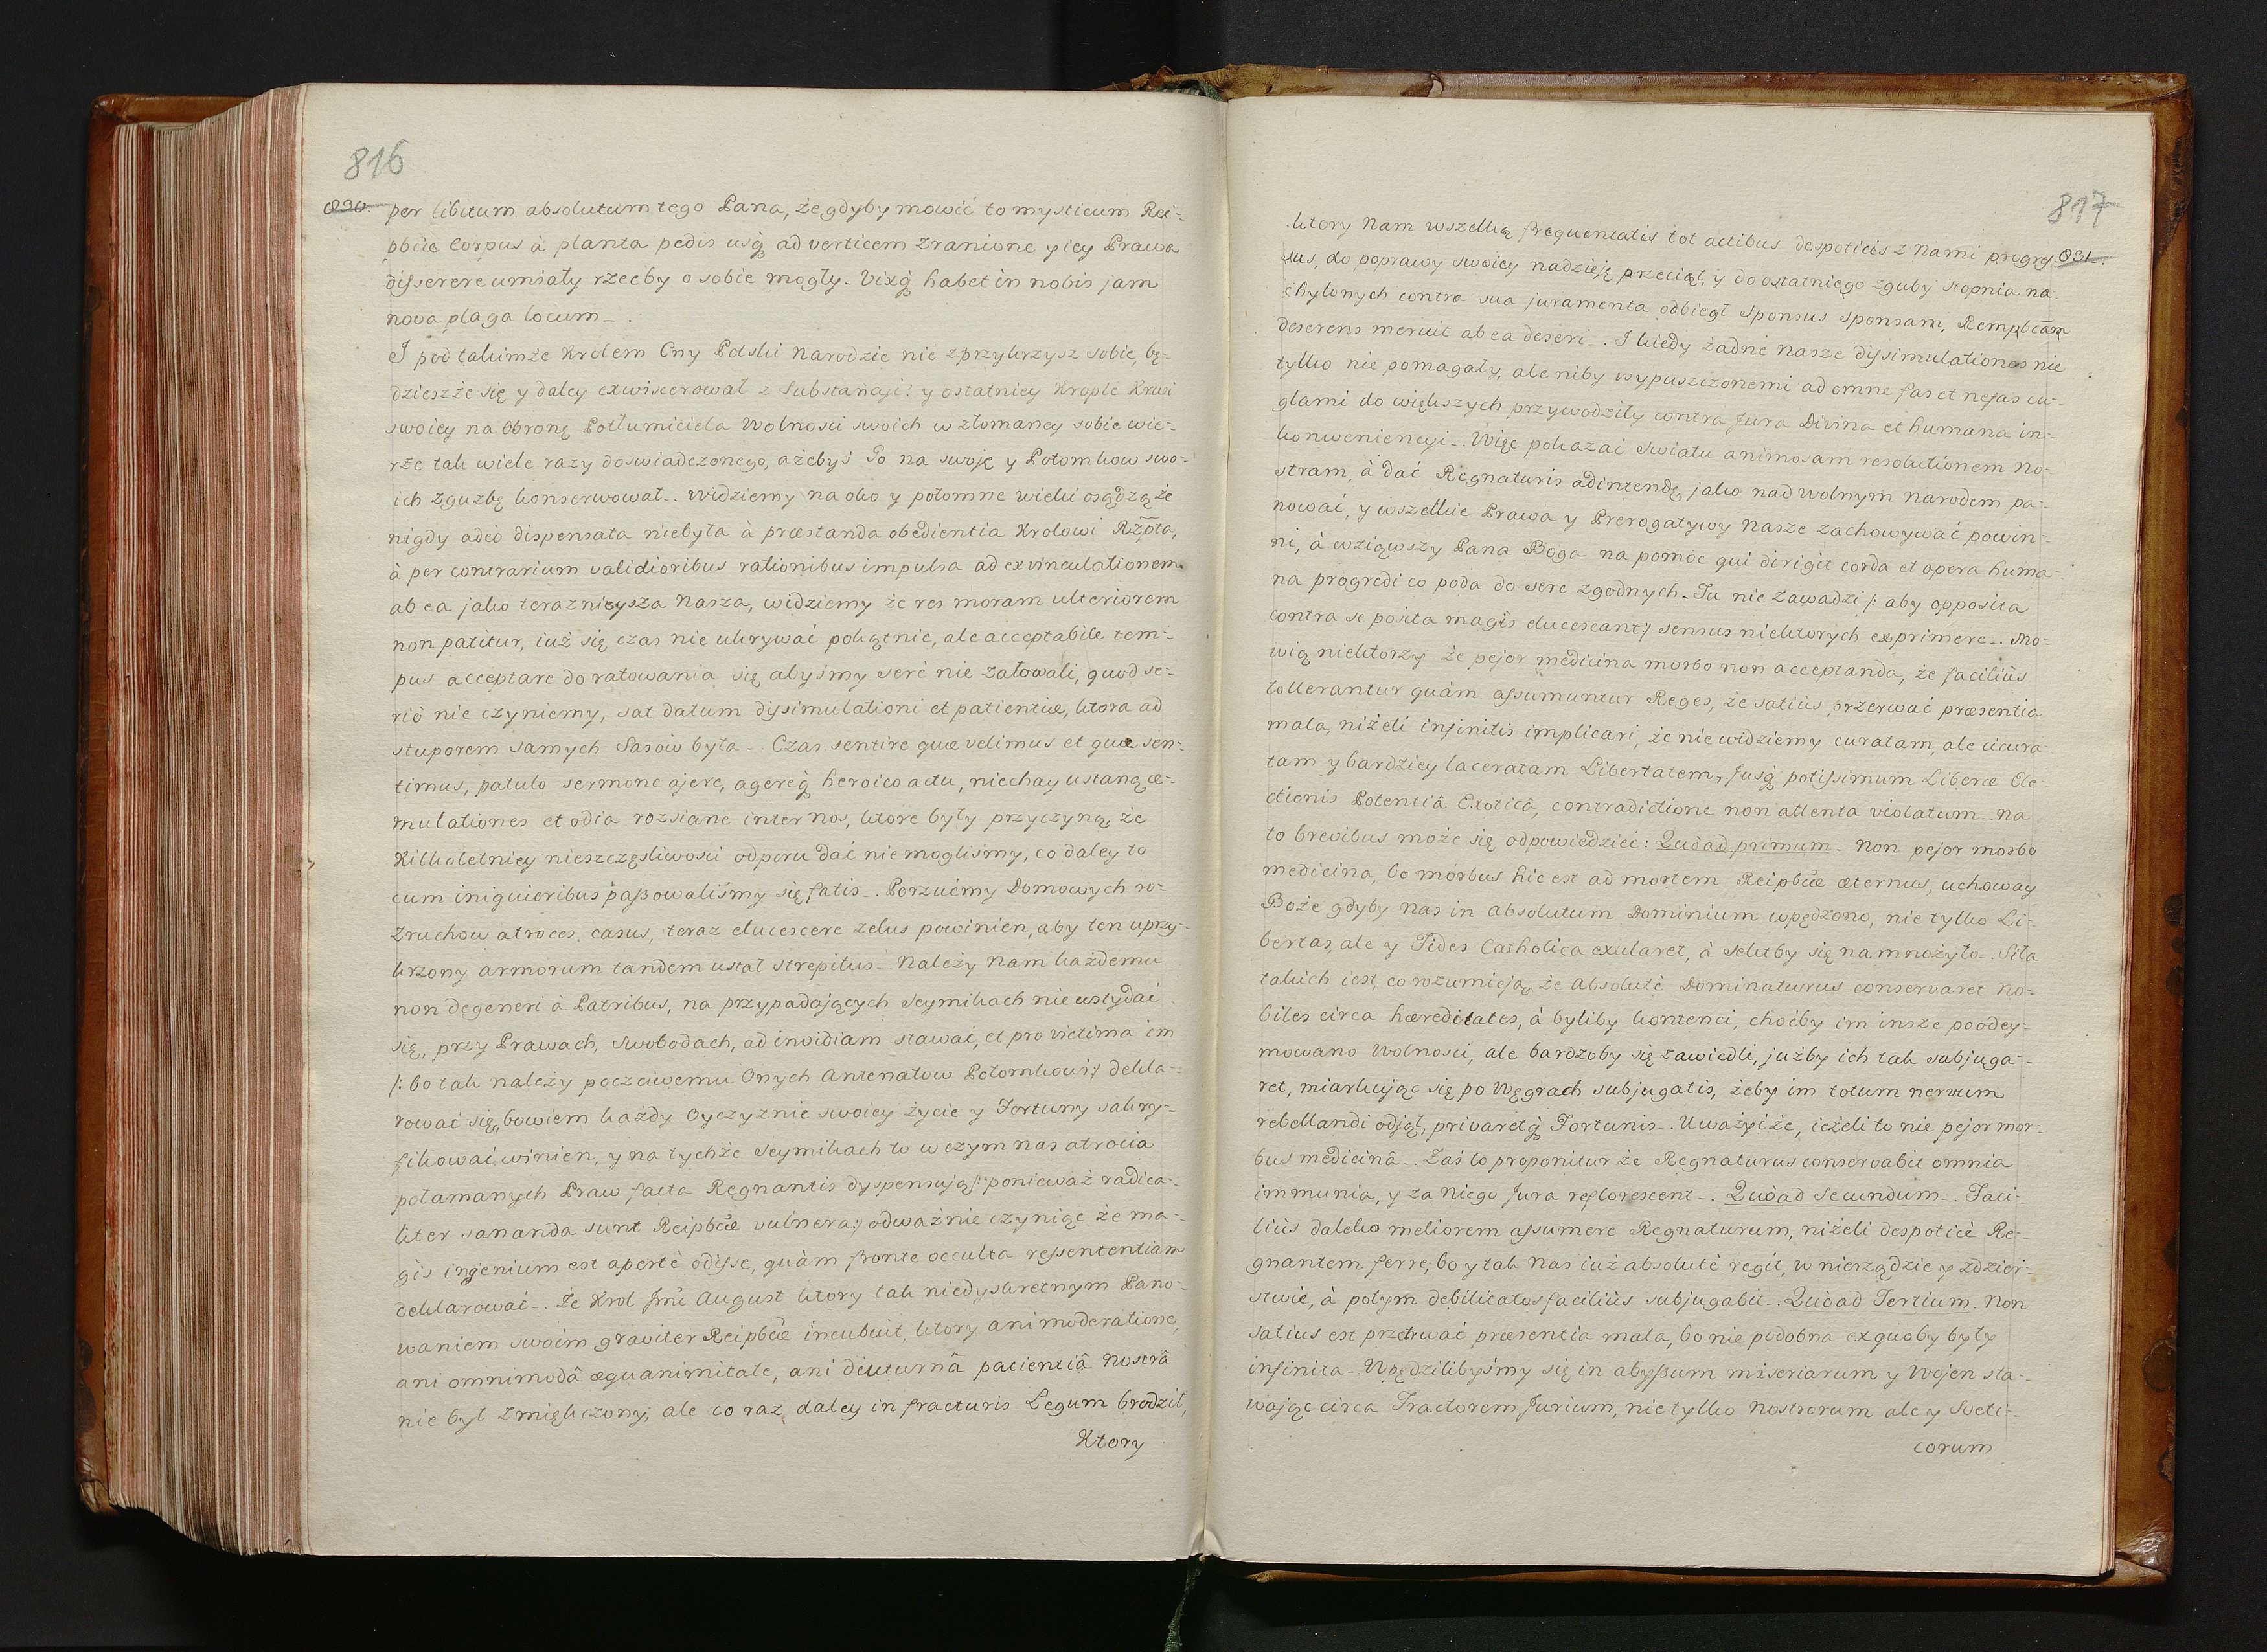 816
830. per libitum absolutum tego Pana, że gdyby mowić to mysticum Rei-
pbłæ Corpus à planta pedis usq; ad verticem zranione y iey Prawa
disserere umiały rzecby o sobie mogły. Vixq; habet in nobis jam
nova plaga locum.
I pod takimże Krolem Cny Polski Narodzie nie zprzykrzysz sobie, bę-
dzieszże się y daley exwiscerował z Substancyi: y ostatniey Krople Krwi
swoiey na Obronę Potłumiciela Wolnosci swoich w złomaney sobie wie-
rze tak wiele razy doswiadczonego, ażebyś Go na swoję y Potomkow swo-
ich zguzbę konserwował. Widziemy na oko y potomne wieki osądzą że
nigdy adeò dispensata niebyła à præstanda obedientia Krolowi Rzpta,
à per contrarium validioribus rationibus impulsa ad exvinculationem
ab ea jako teraznieysza Nasza, widziemy że res moram ulteriorem
non patitur, iuż się czas nie ukrywać pokątnie, ale acceptabile tem-
pus acceptare do ratowania się abyśmy serc nie żałowali, quod se-
riò nie czyniemy, sat datum dyssimulationi et patientiæ, ktora ad
stuporem samych Sasow była. Czas sentire quæ velimus et quæ sen-
timus, patulo sermone ajere, agereq; heroico actu, niechay ustaną æ-
mulationes et odia rozsiane inter nos, ktore były przyczyną że
Kilkoletniey nieszczęsliwosci odporu dać niemogliśmy, co daley to
cum iniquioribus passowaliśmy się fatis. Porzućmy Domowych ro-
zruchow atroces casus, teraz elucescere zelus powinien, aby ten uprzy-
krzony armorum tandem ustał strepitus. Należy Nam każdemu
non degeneri à Patribus, na przypadających Seymikach nie wstydać
się, przy Prawach, swobodach, ad invidiam stawać, et pro victima im
/: bo tak należy poczciwemu Onych Antenatow Potomkowi :/ dekla-
rować się, bowiem każdy Oyczyznie swoiey życie y Fortuny sakry-
fikować winien, y na tychże Seymikach to w czym nas atrocia
połamanych Praw facta Regnantis dyspensują /: ponieważ radica-
liter sananda sunt Reipbłæ vulnera :/ odważnie czyniąc że ma-
gis ingenium est apertè odisse, quàm fronte occulta ressententiam
deklarować. Że Krol Jmć August ktory tak niedyskretnym Pano-
waniem swoim graviter Reipbłæ incubuit, ktory ani moderatione,
ani omnimodâ æquanimitate, ani diuturnâ patientiâ Nostrâ
nie był zmiękczony, ale co raz daley in fracturis Legum brodził,
Ktory
817
831.
ktory Nam wszelką frequentatis tot actibus despoticis z nami progres-
sus, do poprawy swoiey nadzieję przeciął, y do ostatniego zguby stopnia na-
chylonych contra sua juramenta odbiegł Sponsus Sponsam, Rempbłcam
deserens meruit ab ea deseri. I kiedy żadne nasze dissimulationes nie
tylko nie pomagały, ale niby wypuszczonemi ad omne fas et nefas cu-
glami do większych przywodziły contra Jura Divina et humana in-
konweniencyi. Więc pokazać swiatu animosam resolutionem no-
stram, à dać Regnaturis adintendę, jako nad wolnym narodem pa-
nować, y wszelkie Prawa y Prerogatywy Nasze zachowywać powin-
ni, à wziąwszy Pana Boga na pomoc qui dirigit corda et opera huma-
na progredi co poda do serc zgodnych. Tu nie zawadzi /: aby opposita
contra se posita magis elucescant :/ sensus niektorych exprimere. Mo-
wią niektorzy że pejor medicina morbo non acceptanda, że faciliùs
tollerantur quàm assumuntur Reges, że satiùs przerwać præsentia
mala, niżeli infinitis implicari, że niewidziemy curatam, ale cicura-
tam y bardziey laceratam Libertatem, Jusq; potissimum Liberæ Ele-
ctionis Potentiâ Exoticâ, contradictione non attenta violatum. Na
to brevibus może się odpowiedzieć: Quòad primum. Non pejor morbo
medicina, bo morbus hic est ad mortem Reipbłæ æternus, uchoway
Boże gdyby nas in absolutum Dominium wpędzono, nie tylko Li-
bertas, ale y Fides Catholica exularet, à Sektby się namnożyło. Siła
takich iest, co rozumieją że absolutè Dominaturus conservaret No-
biles circa hæreditates, à byliby kontenci, choćby im insze poodey-
mowano Wolnosci, ale bardzoby się zawiedli, jużby ich tak subjuga-
ret, miarkując się po Węgrach subjugatis, żeby im totum nervum
rebellandi odjął, privaretq; Fortunis. Uważyćże, ieżeli to nie pejor mor-
bus medicinâ. Zaś to proponitur że Regnaturus conservabit omnia
immunia, y za niego Jura reflorescent. Quòad Secundum. Faci-
liùs daleko meliorem assumere Regnaturum, niżeli despoticè Re-
gnantem ferre, bo y tak nas iuż absolutè regit, w nierządzie y zdzier-
stwie, à potym debilitatos faciliùs subjugabit. Quòad Tertium. Non
satius est przetrwać præsentia mala, bo nie podobna ex quo by były
infinita. Wpędzilibyśmy się in abyssum miseriarum y Wojen sta-
wając circa Fractorem Jurium, nie tylko Nostrorum ale y Sveti-
corum